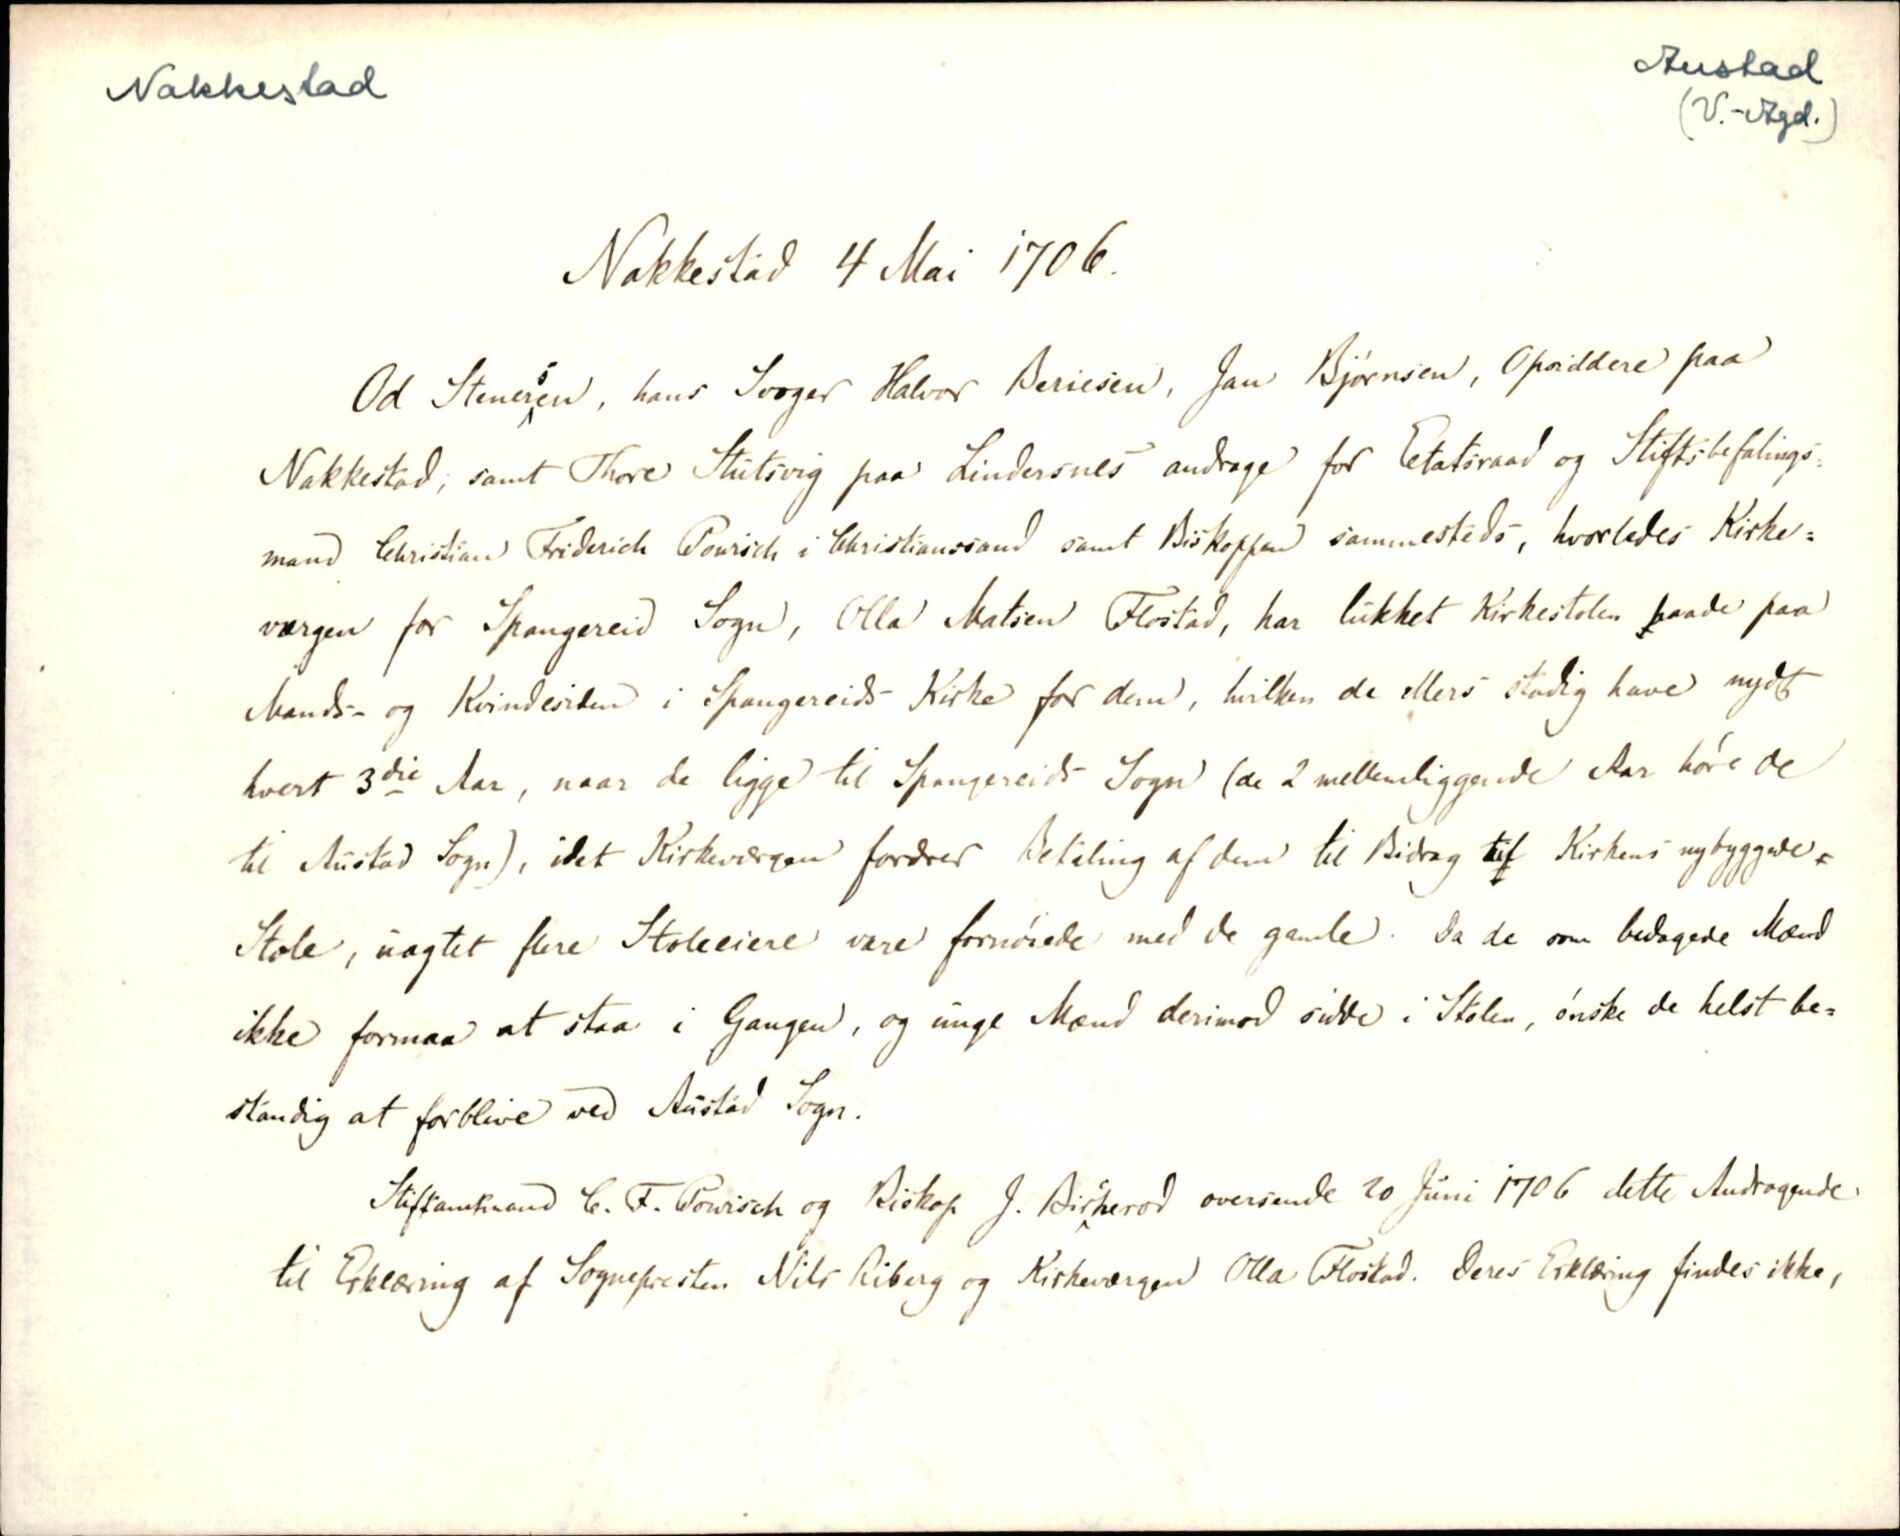 Nakkestad
Austad
(V.-Agd.)
Nakkestad 4 Mai 1706.
Od Stenersen, hans Svoger Halvor Beriesen, Jan Bjørnsen, Opsiddere paa
Nakkestad, samt Thore Stutsvig paa Lindersnes andrage for Etatsraad og Stiftsbefalings=
mand Christian Friderich Powisch i Christianssand samt Biskoppen sammesteds, hvorledes Kirke=
værgen for Spangereid Sogn, Olla Matsen Flostad, har lukket Kirkestolen baade paa
Mands- og Kvindesiden i Spangereids Kirke for dem, hvilken de ellers stadig have nydt
hvert 3die Aar, naar de ligge til Spangereids Sogn (de 2 mellemliggende Aar høre de
til Austad Sogn), idet Kirkeværgen fordrer Betaling af dem til Bidrag til Kirkens nybyggede
Stole, uagtet flere Stoleeiere vare fornøiede med de gamle. Da de som bedagede Mænd
ikke formaa at staa i Gangen, og unge Mænd derimod sidde i Stolen, ønske de helst be=
standig at forblive ved Austad Sogn.
Stiftamtmand C. F. Powisch og Biskop J. Bircherod oversende 20 Juni 1706 dette Andragende
til Erklæring af Sognepresten Nils Riberg og Kirkeværgen Olla Flostad. Deres Erklæring findes ikke,